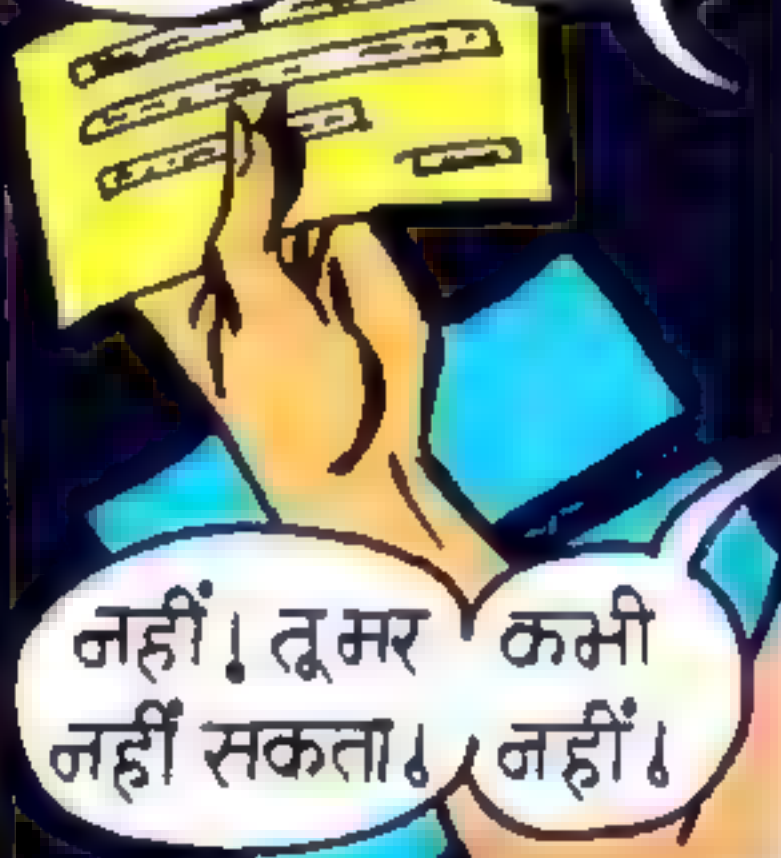 नहीं! तू मर
नहीं सकता!
कभी
नहीं!